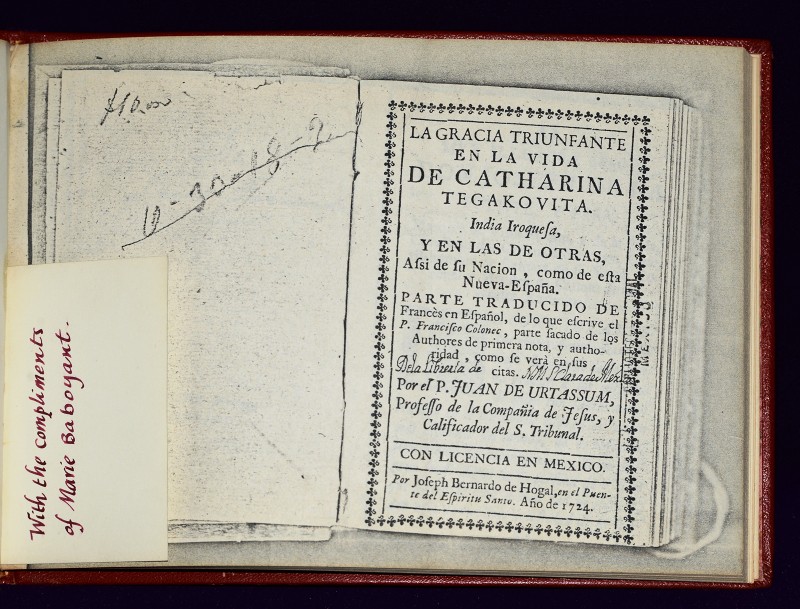 With the compliments
of Marie Baboyant.
LA GRACIA TRIUNFANTE
EN LA VIDA
DE CATHARINA
TEGAKOVITA.
India Iroqueſa,
Y EN LAS DE OTRAS,
Aſsi de ſu Nacion, como de eſta
Nueva-Eſpaña.
PARTE TRADUCIDO DE
Francès en Eſpañol, de lo que eſcrive el
P. Franciſco Colonec, parte ſacado de los
Authores de primera nota, y autho-
ridad, como ſe verà en ſus
De la Libreria de
citas.
Por el P. JUAN DE URTASSUM,
Profeſſo de la Compañia de Jeſus, y
Calificador del S. Tribunal.
CON LICENCIA EN MEXICO.
Por Joſeph Bernardo de Hogal, en el Puen-
te del Eſpiritu Santo. Año de 1724.